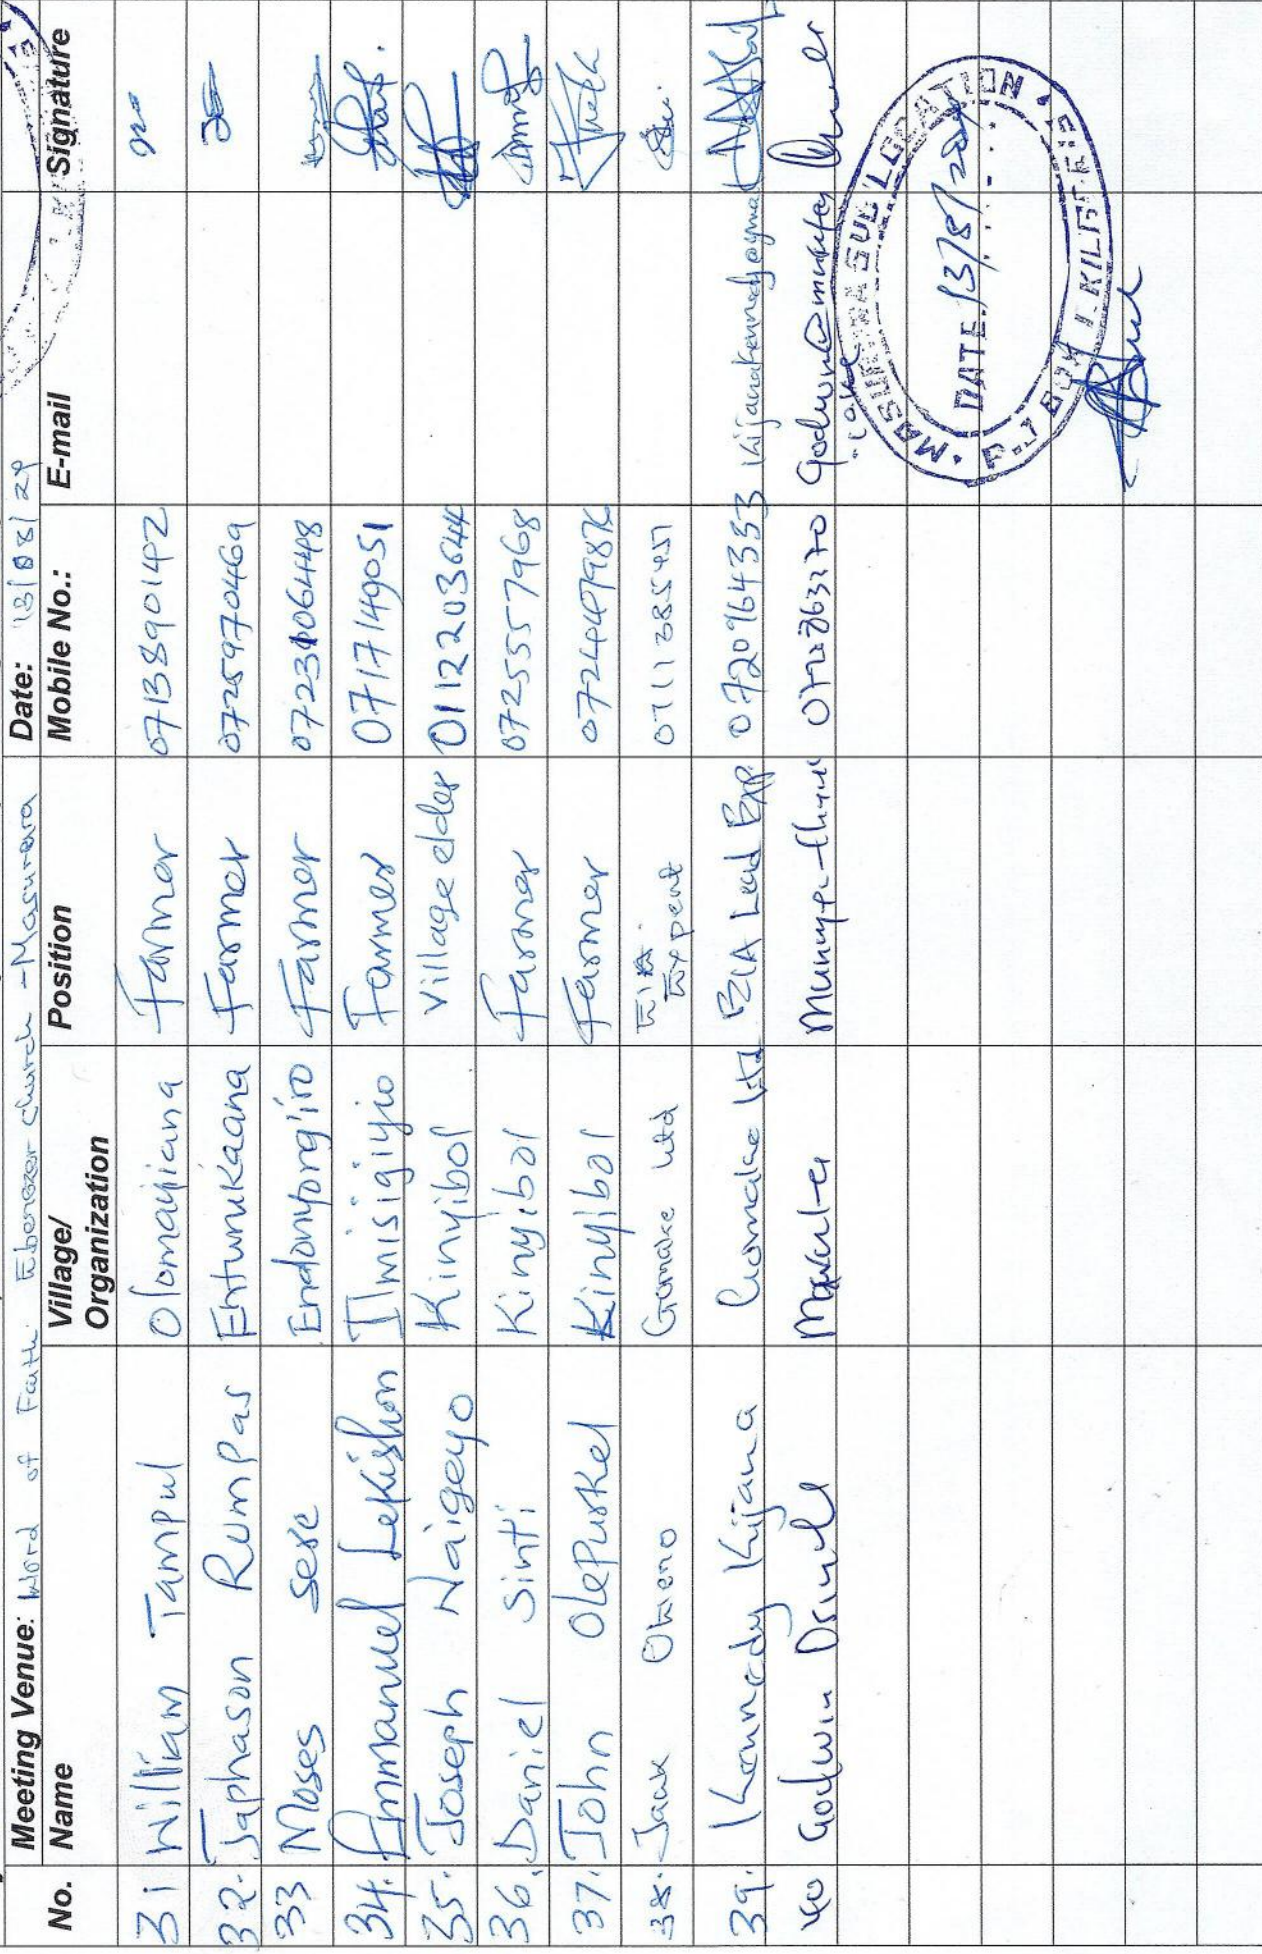 Meeting Venue: Word of Faith Ebenezer church - Masurura Date: 13/08/24
No. Name Village/ Organization Position Mobile No.: E-mail Signature
31 William Tampul Olomayiana Farmer 0713890142
32. Japhason Rumpas Entunukaana Farmer 0725970469
33 Moses sere Endonyong'iro Farmer
34. Ammanuel Lekishon Ilmisigiyio Farmer 0717149051
35. Joseph Naigeyo Kinyibol Village elder 0112203644
36. Daniel Sinti Kinyibol Farmer 0725557968
37. John OlePurkel Kinyibol Farmer
38. Otieno Gomake Ltd EIA Expert 0711385451
39. Kennedy Kijana Gomake Ltd EIA Lead Exp 0720964353
40 Godwin
MASURURA SUB LOCATION
DATE 13/8/2024
P.O BOX 1 KILGORIS